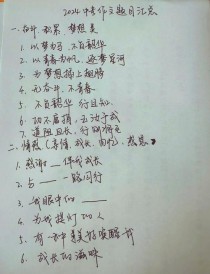 2024中考作文题目汇总
一、奋斗 积累 梦想类
1. 以梦为马，不负韶华
2. 以青春为帆，逐梦星河
3. 为梦想插上翅膀
4. 无奋斗，不青春
5. 不负韶华 行且知
6. 功不唐捐，玉汝于成
7. 道阻且长，行则将至
二、情感（亲情、成长、回忆）、感恩
1. 感谢 伴我成长
2. 与 一路同行
3. 我眼中的
4. 为我提灯的人
5. 有一种美好唤醒我
6. 成长的滋味